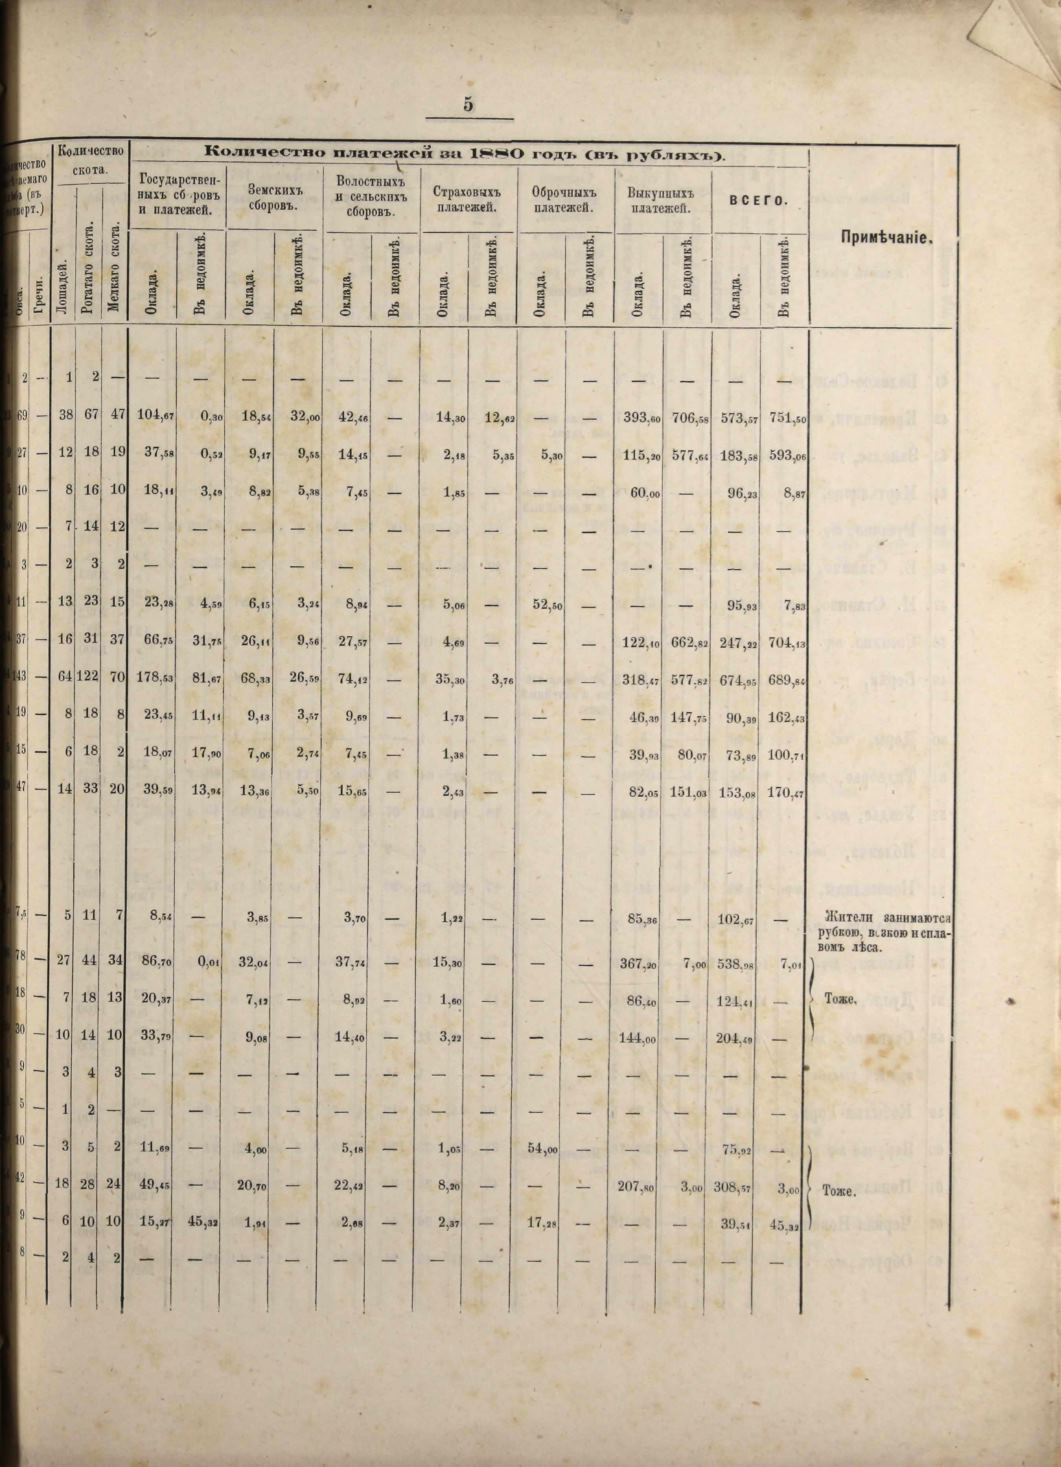 5
Количество скота.
Количество платежей за 1880 годъ (въ рубляхъ).
Примѣчаніе.
Государствен-
ныхъ сб ровъ
и платежей.
Земскихъ
сборовъ.
Волостныхъ
и сельскихъ
сборовъ.
Страховыхъ
платежей.
Оброчныхъ
платежей.
Выкупныхъ
платежей.
ВСЕГО.
Гречи. Лошадей. Рогатаго скота. Мелкаго скота. Оклада. Въ недоимкѣ. Оклада. Въ недоимкѣ. Оклада. Въ недоимкѣ. Оклада. Въ недоимкѣ. Оклада. Въ недоимкѣ. Оклада. Въ недоимкѣ. Оклада. Въ недоимкѣ.
2 — 1 2 — — — — — — — — — — — — — — —
69 — 38 67 47 104,67 0,30 18,54 32,00 42,46 — 14,30 12,62 — — 393,60 706,58 573,57 751,50
27 — 12 18 19 37,58 0,52 9,17 9,55 14,15 — 2,18 5,35 5,30 — 115,20 577,64 183,58 593,06
10 — 8 16 10 18,11 3,49 8,82 5,38 7,45 — 1,85 — — — 60,00 — 96,23 8,87
20 — 7 14 12 — — — — — — — — — — — — — —
3 — 2 3 2 — — — — — — — — — — — — — —
11 — 13 23 15 23,28 4,59 6,15 3,24 8,94 — 5,06 — 52,50 — — — 95,93 7,83
37 — 16 31 37 66,75 31,75 26,11 9,56 27,57 — 4,69 — — — 122,10 662,82 247,22 704,13
143 — 64 122 70 178,53 81,67 68,33 26,59 74,12 — 35,30 3,76 — — 318,47 577,82 674,95 689,84
19 — 8 18 8 23,45 11,11 9,13 3,57 9,69 — 1,73 — — — 46,39 147,75 90,39 162,43
15 — 6 18 2 18,07 17,90 7,06 2,74 7,45 — 1,38 — — — 39,93 80,07 73,89 100,71
47 — 14 33 20 39,59 13,94 13,36 5,50 15,65 — 2,43 — — — 82,05 151,03 153,08 170,47
7,5 — 5 11 7 8,54 — 3,85 — 3,70 — 1,22 — — — 85,36 — 102,67 —
Жители занимаются
рубкою, возкою и спла-
вомъ лѣса.
78 — 27 44 34 86,70 0,01 32,04 — 37,74 — 15,30 — — — 367,20 7,00 538,98 7,01
18 — 7 18 13 20,37 — 7,12 — 8,92 — 1,60 — — — 86,40 — 124,41 — Тоже.
30 — 10 14 10 33,79 — 9,08 — 14,40 — 3,22 — — — 144,00 — 204,49 —
9 — 3 4 3 — — — — — — — — — — — — — —
5 — 1 2 — — — — — — — — — — — — — — —
10 — 3 5 2 11,69 — 4,00 — 5,18 — 1,05 — 54,00 — — — 75,92 —
42 — 18 28 24 49,45 — 20,70 — 22,42 — 8,20 — — — 207,80 3,00 308,57 3,00 Тоже.
9 — 6 10 10 15,27 45,32 1,91 — 2,68 — 2,37 — 17,28 — — — 39,51 45,32
8 — 2 4 2 — — — — — — — — — — — — — —